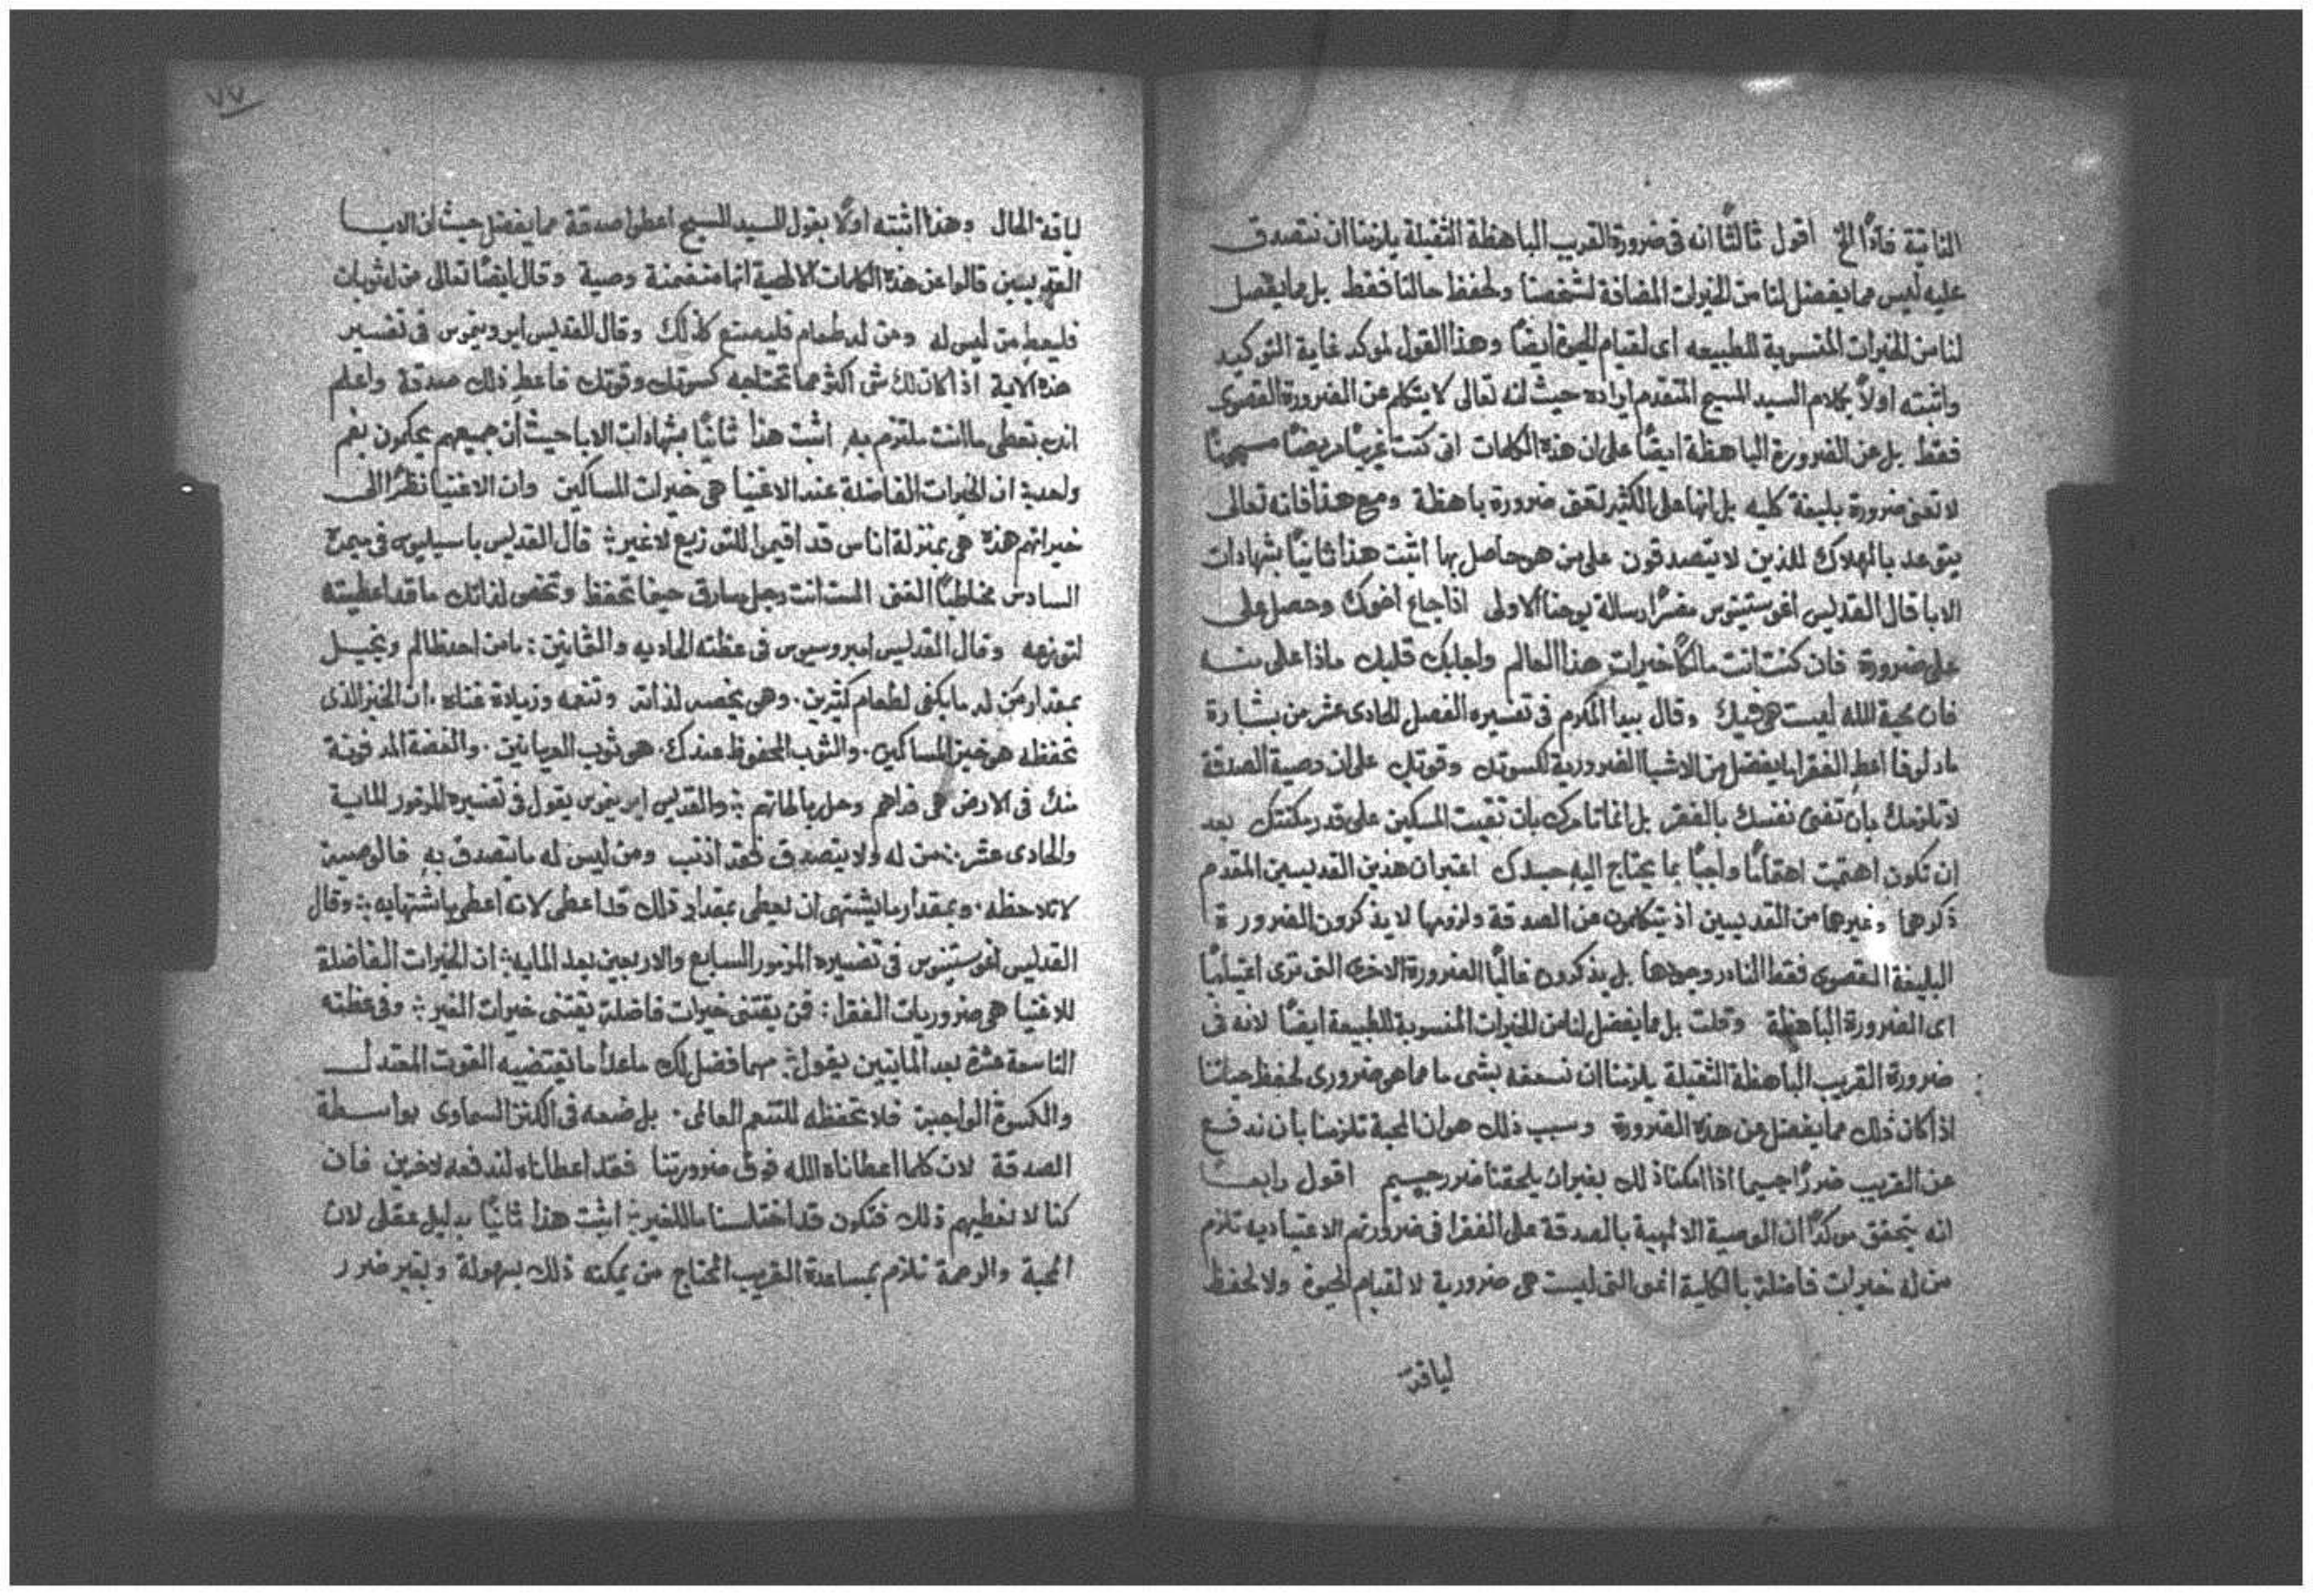 الثانية فاذًا الخ اقول ثالثًا انه فى ضرورة القريب الباهظة الثقيلة يلزمنا ان نتصدق
عليه ليس مما يفضل لنا من الخيرات المضافة لشخصنا ولحفظ حالنا فقط بل مما يفضل
لنا من الخيرات المنسوبة للطبيعه اى لقيام الحيوة ايضًا وهذا القول موكد غاية التوكيد
واثبته اولاً بكلام السيد المسيح المتقدم ايراده حيث انه تعالى لا يتكلم عن الضرورة القصوى
فقط بل عن الضرورة الباهظة ايضًا على ان هذه الكلمات انى كنت غريبًا مريضًا مسجونًا
لا تعنى ضرورة بليغة كليه بل انها على الكثير تعنى ضرورة باهظة ومع هذا فانه تعالى
يتوعد بالهلاك للذين لا يتصدقون على من هو حاصل بها اثبت هذا ثانيًا بشهادات
الابا قال القديس اغوستينوس مفسرًا رسالة يوحنا الاولى اذا جاع اخوك وحصل على
على ضرورة فان كنت انت مالكًا خيرات هذا العالم واغلبك قلبك ماذا على منه
فان محبة الله ليست هى فيك وقال بيدا المكرم فى تفسيره الفصل الحادى عشر من بشارة
مار لوقا اعط الفقرا ما يفضل من الاشيا الضرورية لكسوتك وقوتك على ان وصية الصدقة
لا تلزمك بان تفنى نفسك بالفقر بل انما تامرك بان تقيت المسكين على قدر مكنتك بعد
ان تكون اهتميت اهتمامًا واجبًا بما يحتاج اليه جسدك اعتبر ان هذين القديسين المقدم
ذكرهما وغيرهما من القديسين اذ يتكلمون عن الصدقة ولزومها لا يذكرون الضرورة
البليغة القصوى فقط النادر وجودها بل يذكرون غالبًا الضرورة الاخرى التى ترى اغتياليًا
اى الضرورة الباهظة وقلت بل مما يفضل لنا من الخيرات المنسوبة للطبيعة ايضًا لانه فى
ضرورة القريب الباهظة الثقيلة يلزمنا ان نسعفه بشى ما مما هو ضرورى لحفظ حياتنا
اذا كان ذلك مما يفضل عن هذه الضرورة وسبب ذلك هو ان المحبة تلزمنا بان ندفع
عن القريب ضررًا جسيما اذا امكنا ذلك بغير ان يلحقنا ضرر جسيم اقول رابعًا
انه يتحقق موكدًا ان الوصية الالهية بالصدقة على الفقرا فى ضرورتهم الاعتياديه تلزم
من له خيرات فاضلة بالكلية اعنى التى ليست هى ضرورية لا لقيام الحيوة ولا لحفظ
لياقة
٧٧
لياقة الحال وهذا اثبته اولًا بقول السيد المسيح اعطوا صدقة مما يفضل حيث ان الابا
القديسين قالوا عن هذه الكلمات الالهية انها متضمنة وصية وقال ايضًا تعالى من له ثوبان
فليعط من ليس له ومن له طعام فليصنع كذلك وقال القديس ايرونيموس فى تفسير
هذه الاية اذا كان لك شى اكثر مما تحتاجه كسوتك وقوتك فاعط ذلك صدقة واعلم
انك تعطى ما انت ملتزم به اثبت هذا ثانيًا بشهادات الابا حيث ان جميعهم يحكمون بفم
واحد ان الخيرات الفاضلة عند الاغنيا هى خيرات المساكين وان الاغنيا نظرًا الى
خيراتهم هذه هى بمنزلة اناس قد اقيموا للتوزيع لا غير قال القديس باسيليوس فى ميمره
السادس مخاطبًا الغنى الست انت رجل سارق حينما تحفظ وتخص لذاتك ما قد اعطيته
لتوزعه وقال القديس امبروسيوس فى عظته الحاديه والثمانين ما من احد ظالم وبخيل
بمقدار من له ما يكفى لطعام كثيرين وهو يخصه لذاته وتنعمه وزيادة غناه ان الخبز الذى
تحفظه هو خبز المساكين والثوب المحفوظ عندك هو ثوب العريانين والفضة المدفونة
منك فى الارض هى فداهم وحل رباطاتهم والقديس ايرينموس يقول فى تفسيره المزمور الماية
والحادى عشر من له ولا يتصدق فقد اذنب ومن ليس له ما يتصدق به فالوصية
لا تلاحظه وبمقدار ما يشتهى ان يعطى بمقدار ذلك قد اعطى لانه اعطى باشتهايه وقال
القديس اغوستينوس فى تفسيره المزمور السابع والاربعين بعد الماية ان الخيرات الفاضلة
للاغنيا هى ضروريات الفقرا فمن يقتنى خيرات فاضلة يقتنى خيرات الغير وفى عظته
التاسعة عشرة بعد المايتين يقول مهما فضل لك ماعدا ما يقتضيه القوت المعتدل
والكسوة الواجبة فلا تحفظه للتنعم العالمى بل ضعه فى الكنز السماوى بواسطة
الصدقة لان كلما اعطاناه الله فوق ضرورتنا فقد اعطاناه لندفعه لاخرين فان
كنا لا نعطيهم ذلك فنكون قد اختلسنا ما للغير اثبت هذا ثانيًا بدليل عقلى لان
المحبة والرحمة تلازم بمساعدة القريب المحتاج من يمكنه ذلك بسهولة وبغير ضرر